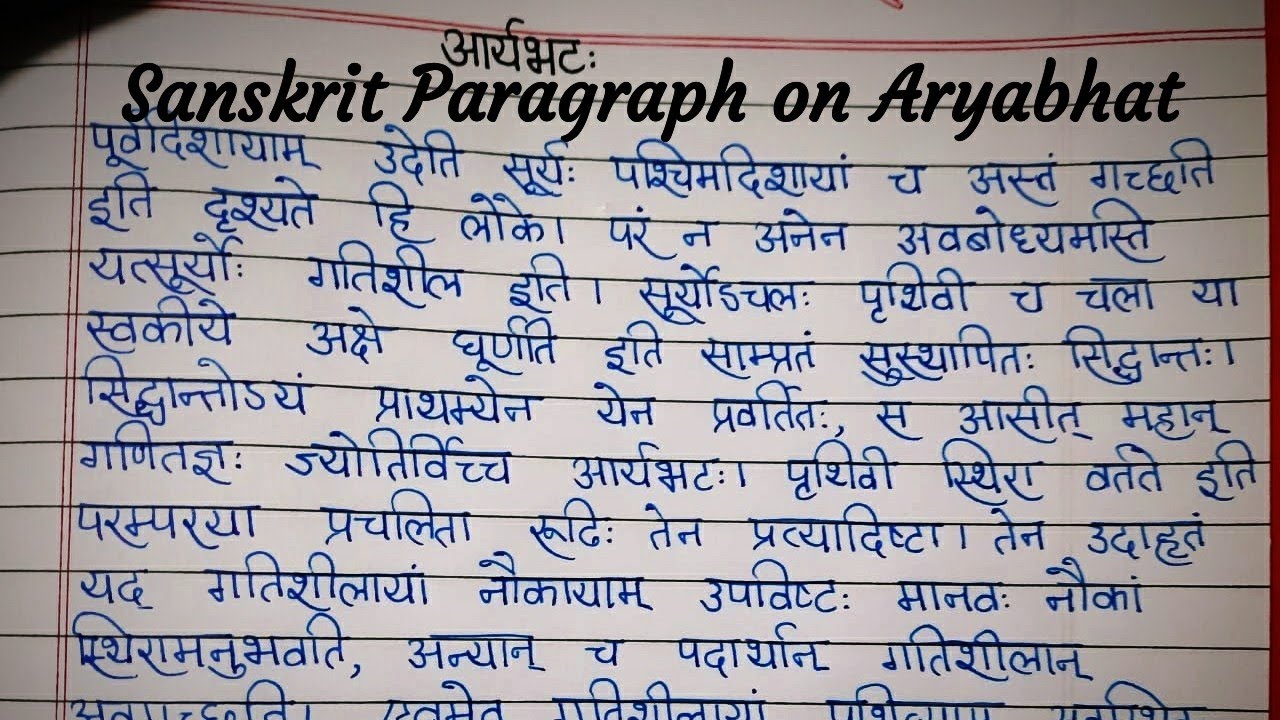 आर्यभटः
Sanskrit Paragraph on Aryabhat
पूर्वदिशायाम् उदेति सूर्यः पश्चिमदिशायां च अस्तं गच्छति
इति दृश्यते हि लोके। परं न अनेन अवबोध्यमस्ति
यत्सूर्योः गतिशील इति। सूर्योऽचलः पृथिवी च चला या
स्वकीये अक्षे घूर्णति इति साम्प्रतं सुस्थापितः सिद्धान्तः।
सिद्धान्तोऽयं प्राथम्येन येन प्रवर्तितः, स आसीत् महान्
गणितज्ञः ज्योतिर्विच्च आर्यभटः। पृथिवी स्थिरा वर्तते इति
परम्परया प्रचलिता रूढिः तेन प्रत्यादिष्टा। तेन उदाहृतं
यद् गतिशीलायां नौकायाम् उपविष्टः मानवः नौकां
स्थिरामनुभवति, अन्यान् च पदार्थान् गतिशीलान्
एवमेव गतिशीलायां